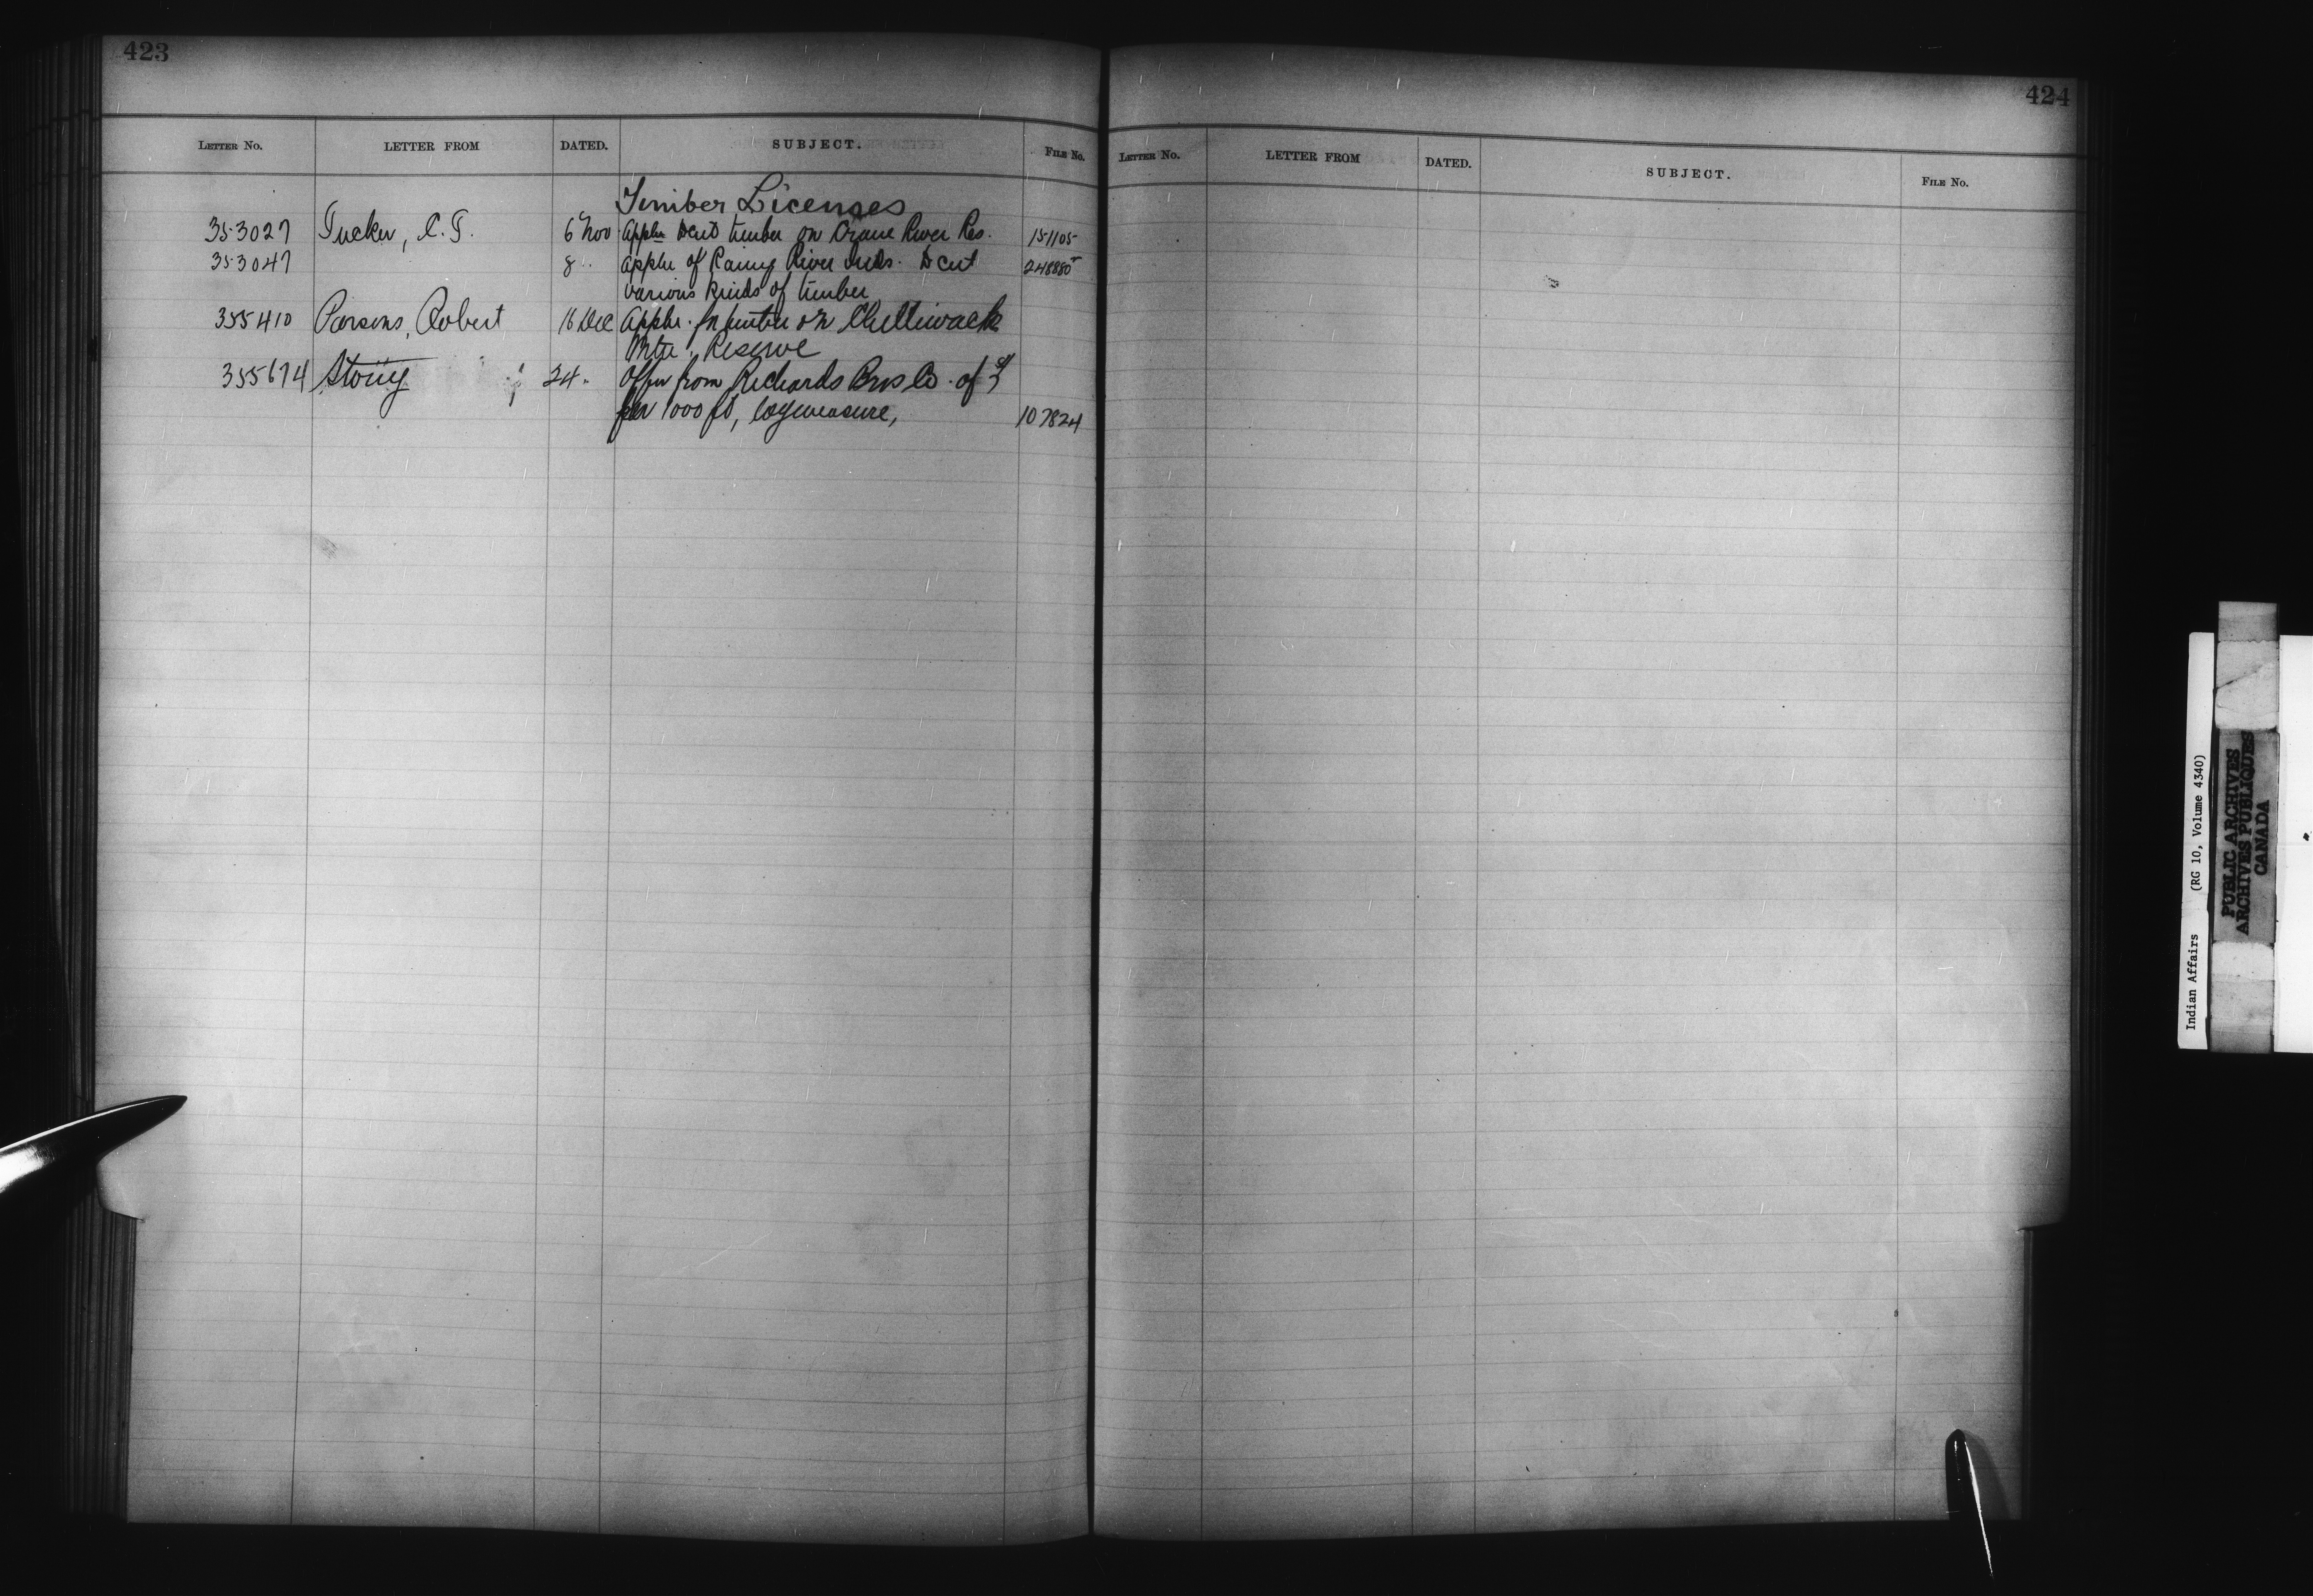 423
LETTER NO. LETTER FROM DATED. SUBJECT. FILE NO.
Timber Licenses
353027 Tucker, C.T. 6 Nov Appln to cut timber on Crane River Res. 151105
353047 8 " Appln of Rainy River Inds. to cut 248880
various kinds of timber
355410 Parsons, Robert 16 Dec Appln. for timber on Chilliwack
Reserve
355674 24 " Offer from Richards Bros Co. of
per 1000 ft, log measure, 107824
424
LETTER NO. LETTER FROM DATED. SUBJECT. FILE NO.
Indian Affairs (RG 10, Volume 4340)
PUBLIC ARCHIVES
ARCHIVES PUBLIQUES
CANADA